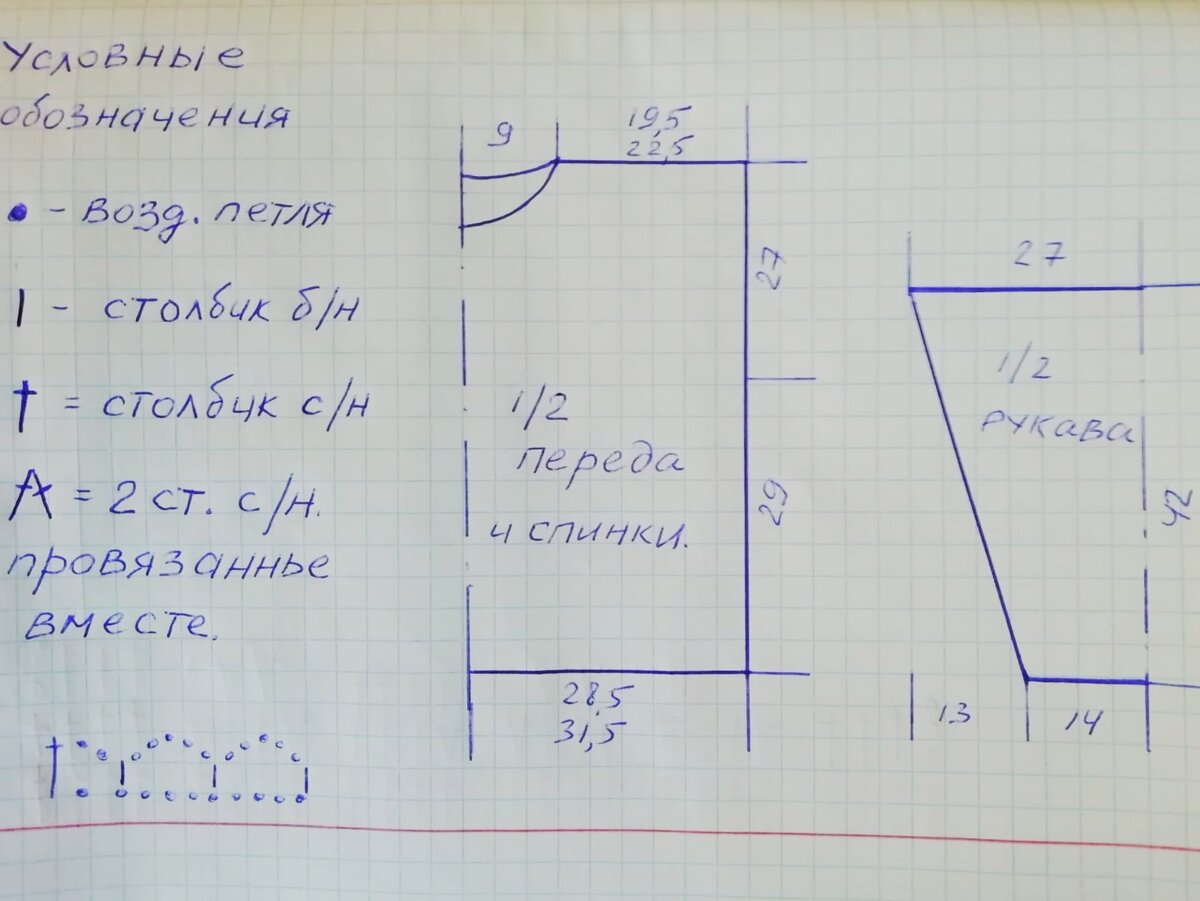 Условные
обозначения
• - возд. петля
ı - столбик б/н
† = столбик с/н
А = 2 ст. с/н.
провязаннье
вместе.
9
19,5
22,5
27
1/2
переда
и спинки.
29
28,5
31,5
27
1/2
рукава
42
13
14